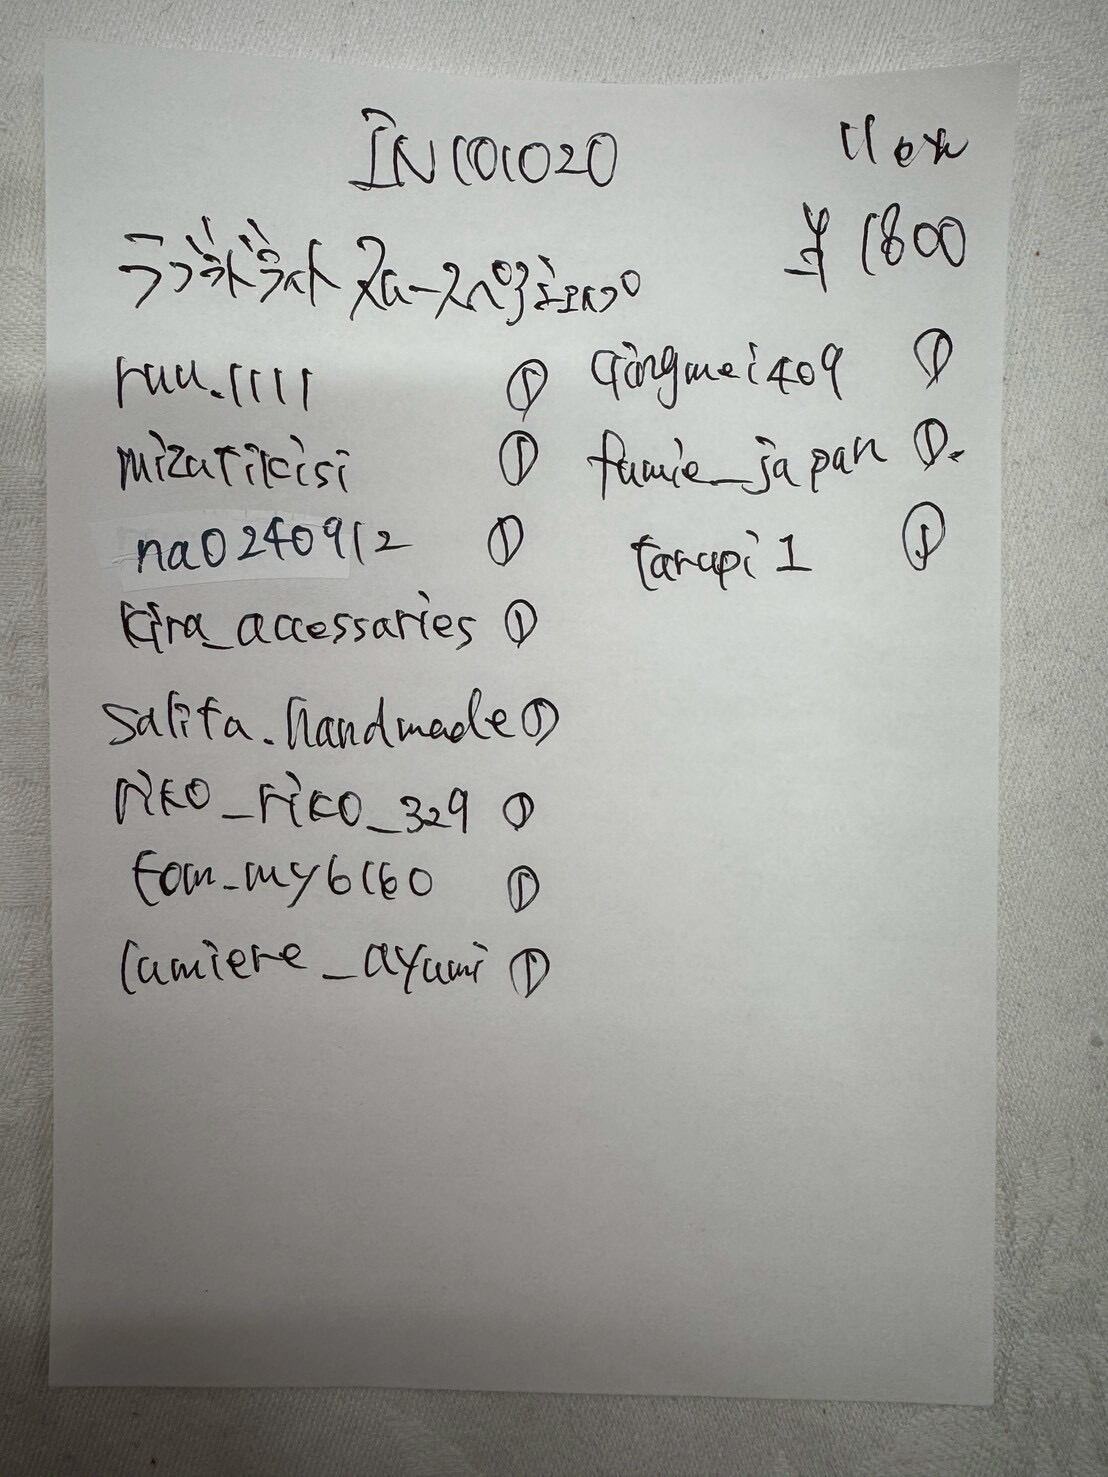 IN101020
11ex
¥1800
ruu.1111 ①
mizutikisi ①
na0240912 ①
kira_accessaries ①
salita.handmade ①
riko_riko_329 ①
tom_my6160 ①
lumiere_ayumi ①
qingmei409 ①
fumie_japan ①.
tarupi1 ①